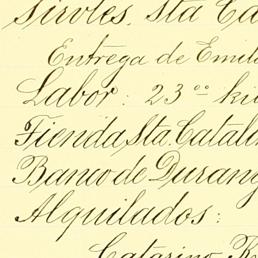 Sirvtes. Sta Ca
Entrega de Emil
Labor: 23 °° ki
Tienda Sta. Catal
Banco de Durang
Alquilados:
Catarino R